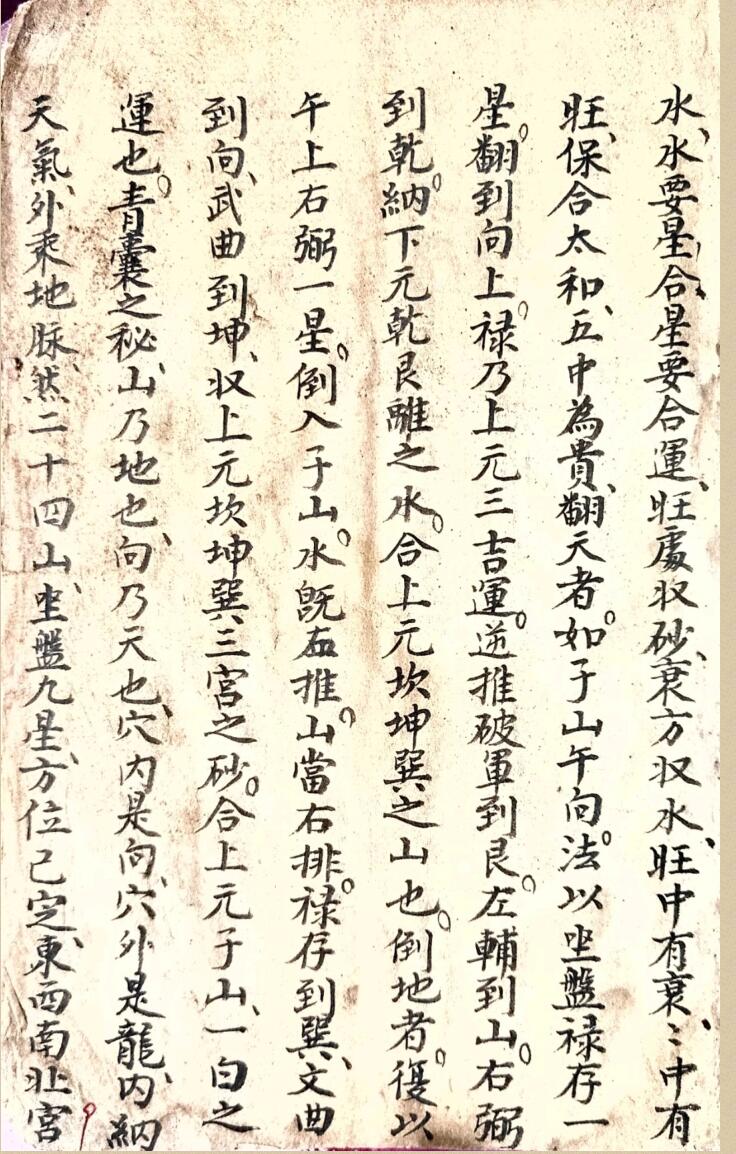 水、水要星合、星要合運、旺處収砂、衰方収水、旺中有衰、〻中有
旺、保合太和、五中為貴、翻天者。如子山午向。法以坐盤禄存一
星。翻到向上。禄乃上元三吉運。逆推破軍到艮。左輔到山。右弼
到乾。納下元乾艮離之水。合上元坎坤巽之山也。倒地者。復以
午上右弼一星。倒入子山。水既左推。山當右排。禄存到巽、文曲
到向、武曲到坤、収上元坎坤巽三宮之砂。合上元子山、一白之
運也。青囊之秘、山乃地也、向乃天也、穴內是向、穴外是龍、內納
天氣、外乘地脉、然二十四山、坐盤九星、方位已定、東西南北宮